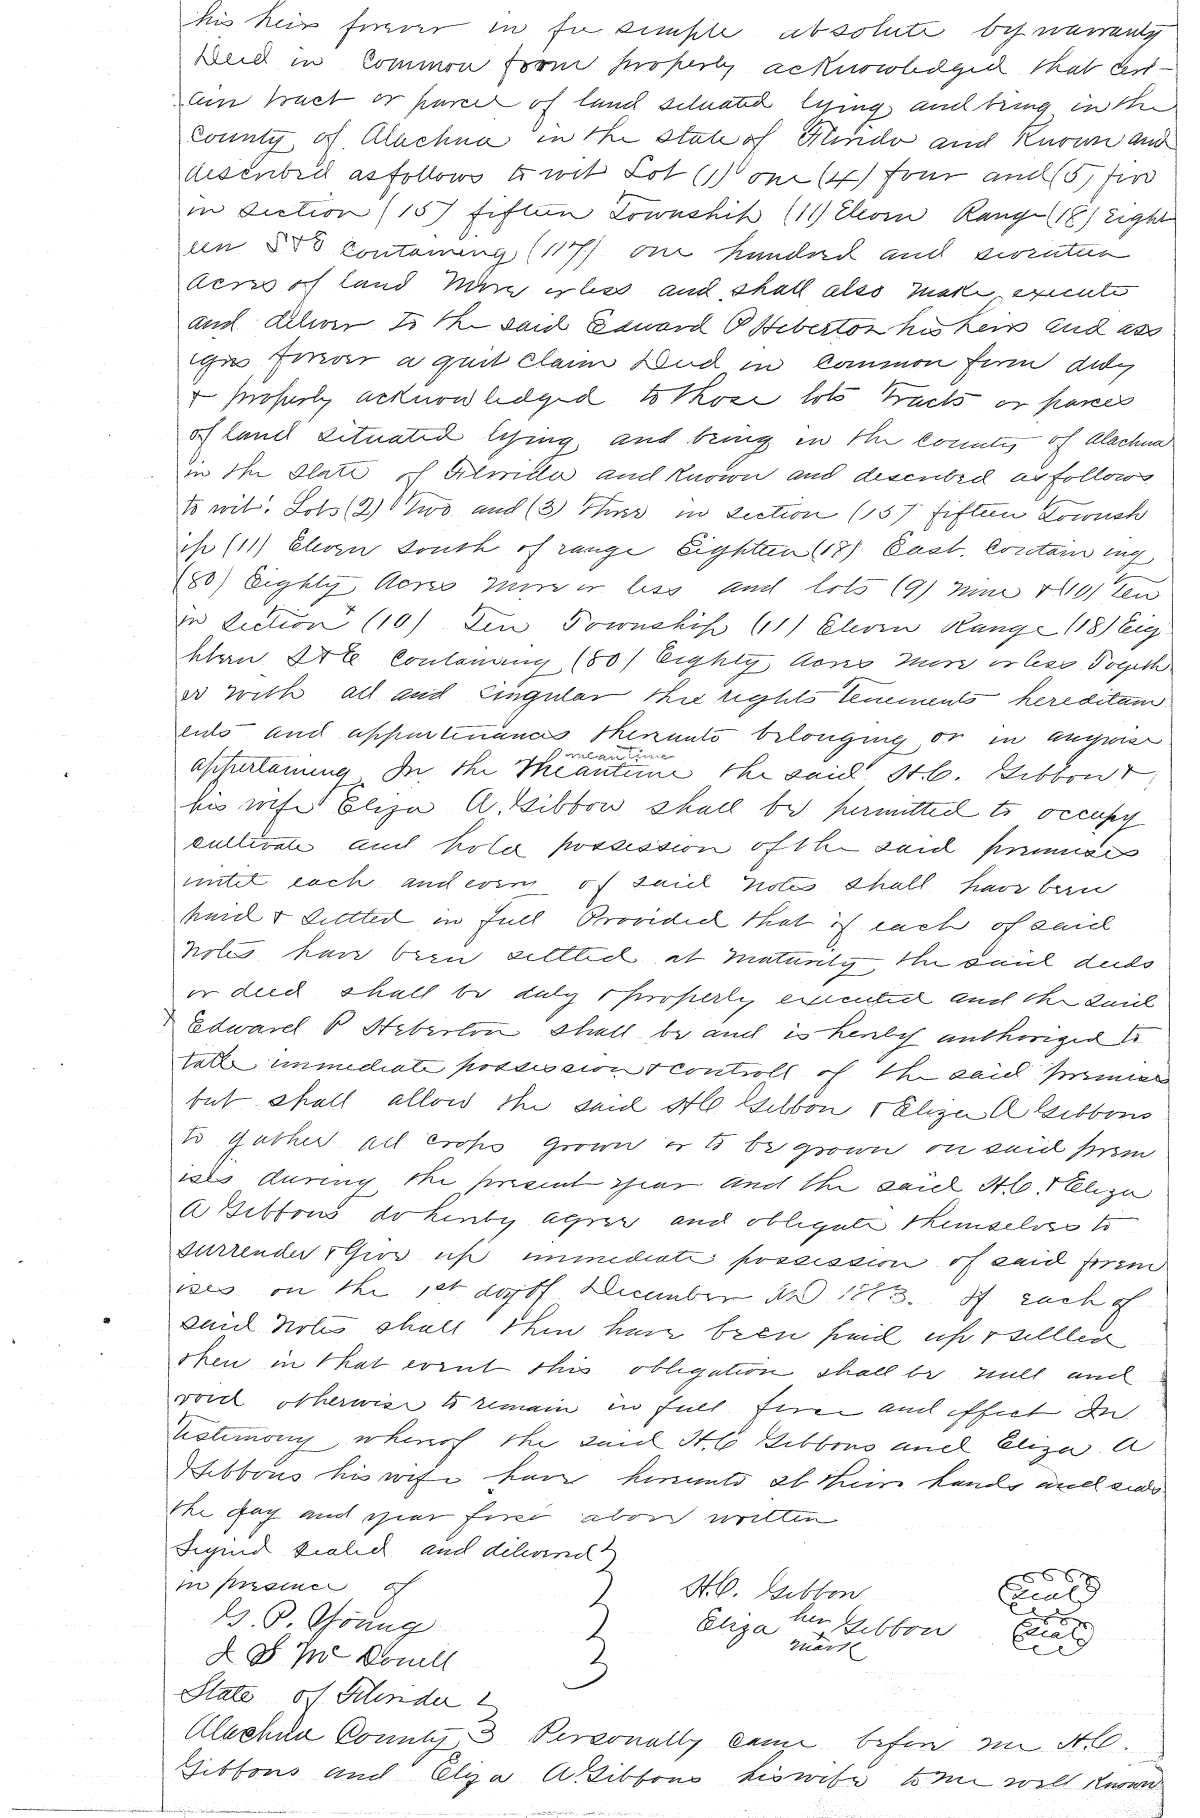 his heirs forever in fee simple absolute by warranty
Deed in Common form properly acknowledged that cert-
ain tract or parcel of land situated lying and being in the
County of Alachua in the state of Florida and Known and
described as follows to wit Lot (1) one (4) four and (5) five
in section (15) fifteen Township (11) Eleven Range (18) Eight
een S&E containing (117) one hundred and seventeen
acres of land more or less and shall also make, execute
and deliver to the said Edward P Heberton his heirs and ass
igns forever a quit claim Deed in common form duly
& properly acknowledged to those lots tracts or parcels
of land situated lying and being in the county of Alachua
in the State of Florida and Known and described as follows
to wit: Lots (2) two and (3) three in section (15) fifteen Townsh
ip (11) Eleven South of range Eighteen (18) East. Contain ing
(80) Eighty Acres more or less and lots (9) nine & (10) Ten
in Section (10) Ten Township (11) Eleven Range (18) Eig
hteen S&E Containing (80) Eighty Acres more or less Togeth
er with all and singular the rights tenements hereditam
ents and appurtenances thereunto belonging or in anywise
meantime
appertaining In the Meantime the said H.C. Gibbon &
his wife Eliza A. Gibbon shall be permitted to occupy
cultivate and hold possession of the said premises
until each and every of said notes shall have been
paid & settled in full Provided that if each of said
Notes have been settled at maturity the said deeds
or deed shall be duly & properly executed and the said
Edward P Heberton shall be and is hereby authorized to
take immediate possession & controll of the said premises
but shall allow the said HC Gibbon & Eliza A Gibbons
to gather all crops grown or to be grown on said prem
ises during the present year and the said H.C. & Eliza
A Gibbons do hereby agree and obligate themselves to
surrender & Give up immediate possession of said prem
ises on the 1st day of December AD 1883. If each of
said Notes shall then have been paid up & settled
then in that event this obligation shall be null and
void otherwise to remain in full force and effect In
Testimony whereof the said H.C Gibbons and Eliza A
Gibbons his wife have hereunto set their hands and seals
the day and year first above written
Signed sealed and delivered
in presence of H.C. Gibbon Seal
G. P. Young Eliza her Gibbon Seal
mark
McDonell
State of Florida
Alachua County Personally came before me H.C.
Gibbons and Eliza A Gibbons his wife to me well Known